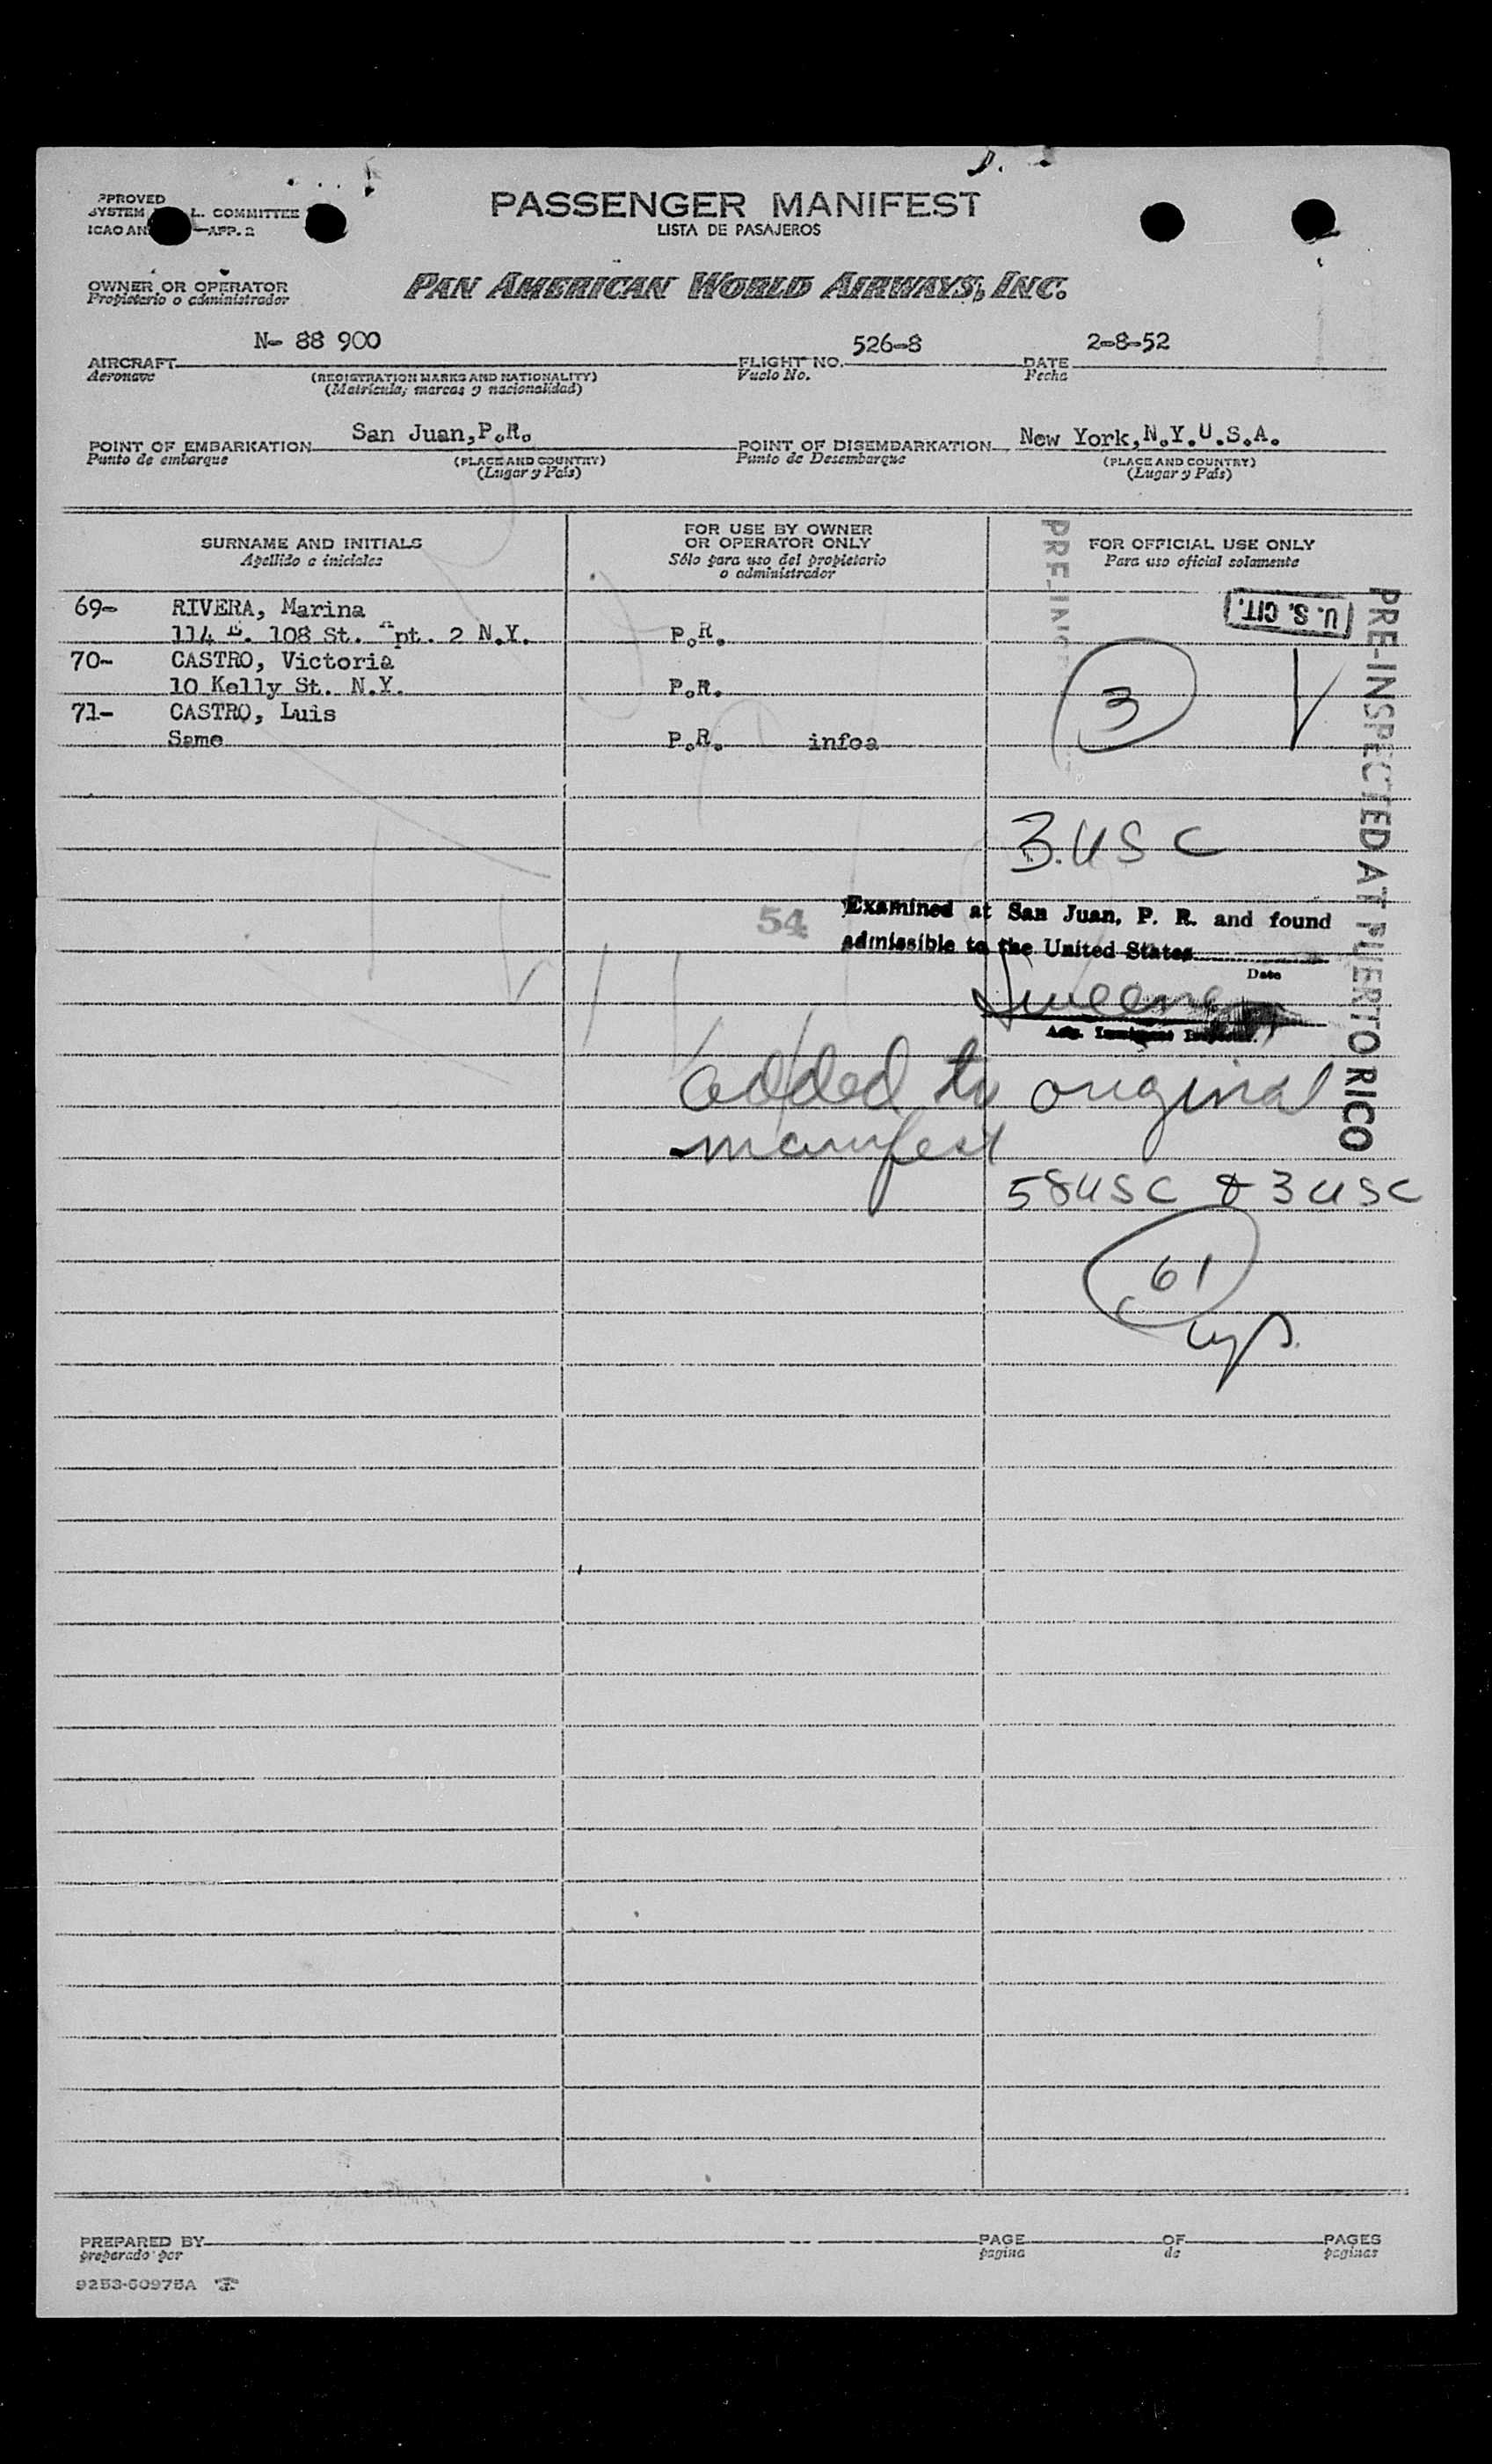 PPROVED
SYSTEM L. COMMITTEE
ICAO AN —APP. 2
PASSENGER MANIFEST
LISTA DE PASAJEROS
OWNER OR OPERATOR
Propietario o administrador
PAN AMERICAN WORLD AIRWAYS, INC.
AIRCRAFT N- 88 900 FLIGHT NO. 526-8 DATE 2-8-52
Aeronave (REGISTRATION MARKS AND NATIONALITY) Vuelo No. Fecha
(Matrícula; marcas y nacionalidad)
POINT OF EMBARKATION San Juan, P.R. POINT OF DISEMBARKATION New York, N.Y. U.S.A.
Punto de embarque (PLACE AND COUNTRY) Punto de Desembarque (PLACE AND COUNTRY)
(Lugar y País) (Lugar y País)
SURNAME AND INITIALS
Apellido e iniciales
FOR USE BY OWNER
OR OPERATOR ONLY
Sólo para uso del propietario
o administrador
FOR OFFICIAL USE ONLY
Para uso oficial solamente
69- RIVERA, Marina
114 E. 108 St. Apt. 2 N.Y. P.R.
70- CASTRO, Victoria
10 Kelly St. N.Y. P.R.
71- CASTRO, Luis
Same P.R. infoa
U. S. CIT.
PRE-INSPECTED AT PUERTO RICO
3
3. USC
54
Examined at San Juan, P. R. and found
admissible to the United States
Date
Sweeney
added to original
manifest
58 USC & 3 USC
61
PREPARED BY PAGE OF PAGES
preparado por pagina de paginas
9253-60975A